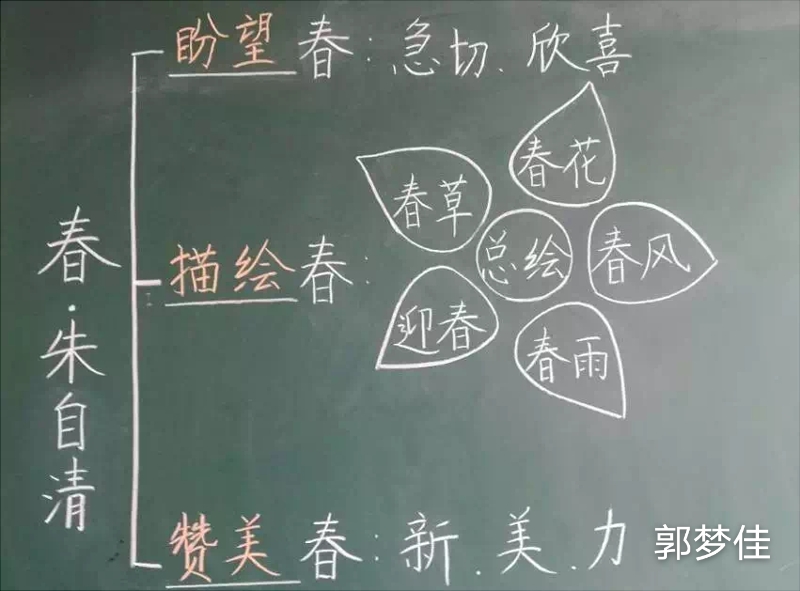 春·朱自清
盼望春：急切、欣喜
描绘春：
春花
春草
总绘
春风
迎春
春雨
赞美春：新、美、力
郭梦佳